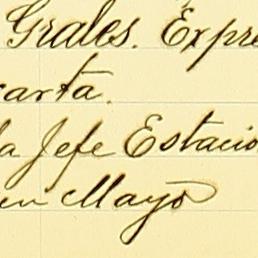 Grales. Expre
carta.
la Jefe Estacio
en Mayo